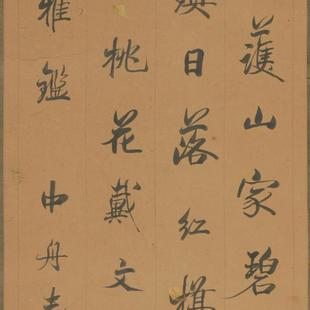 護山家碧
日落紅
桃花戴文
雅鑑 中舟